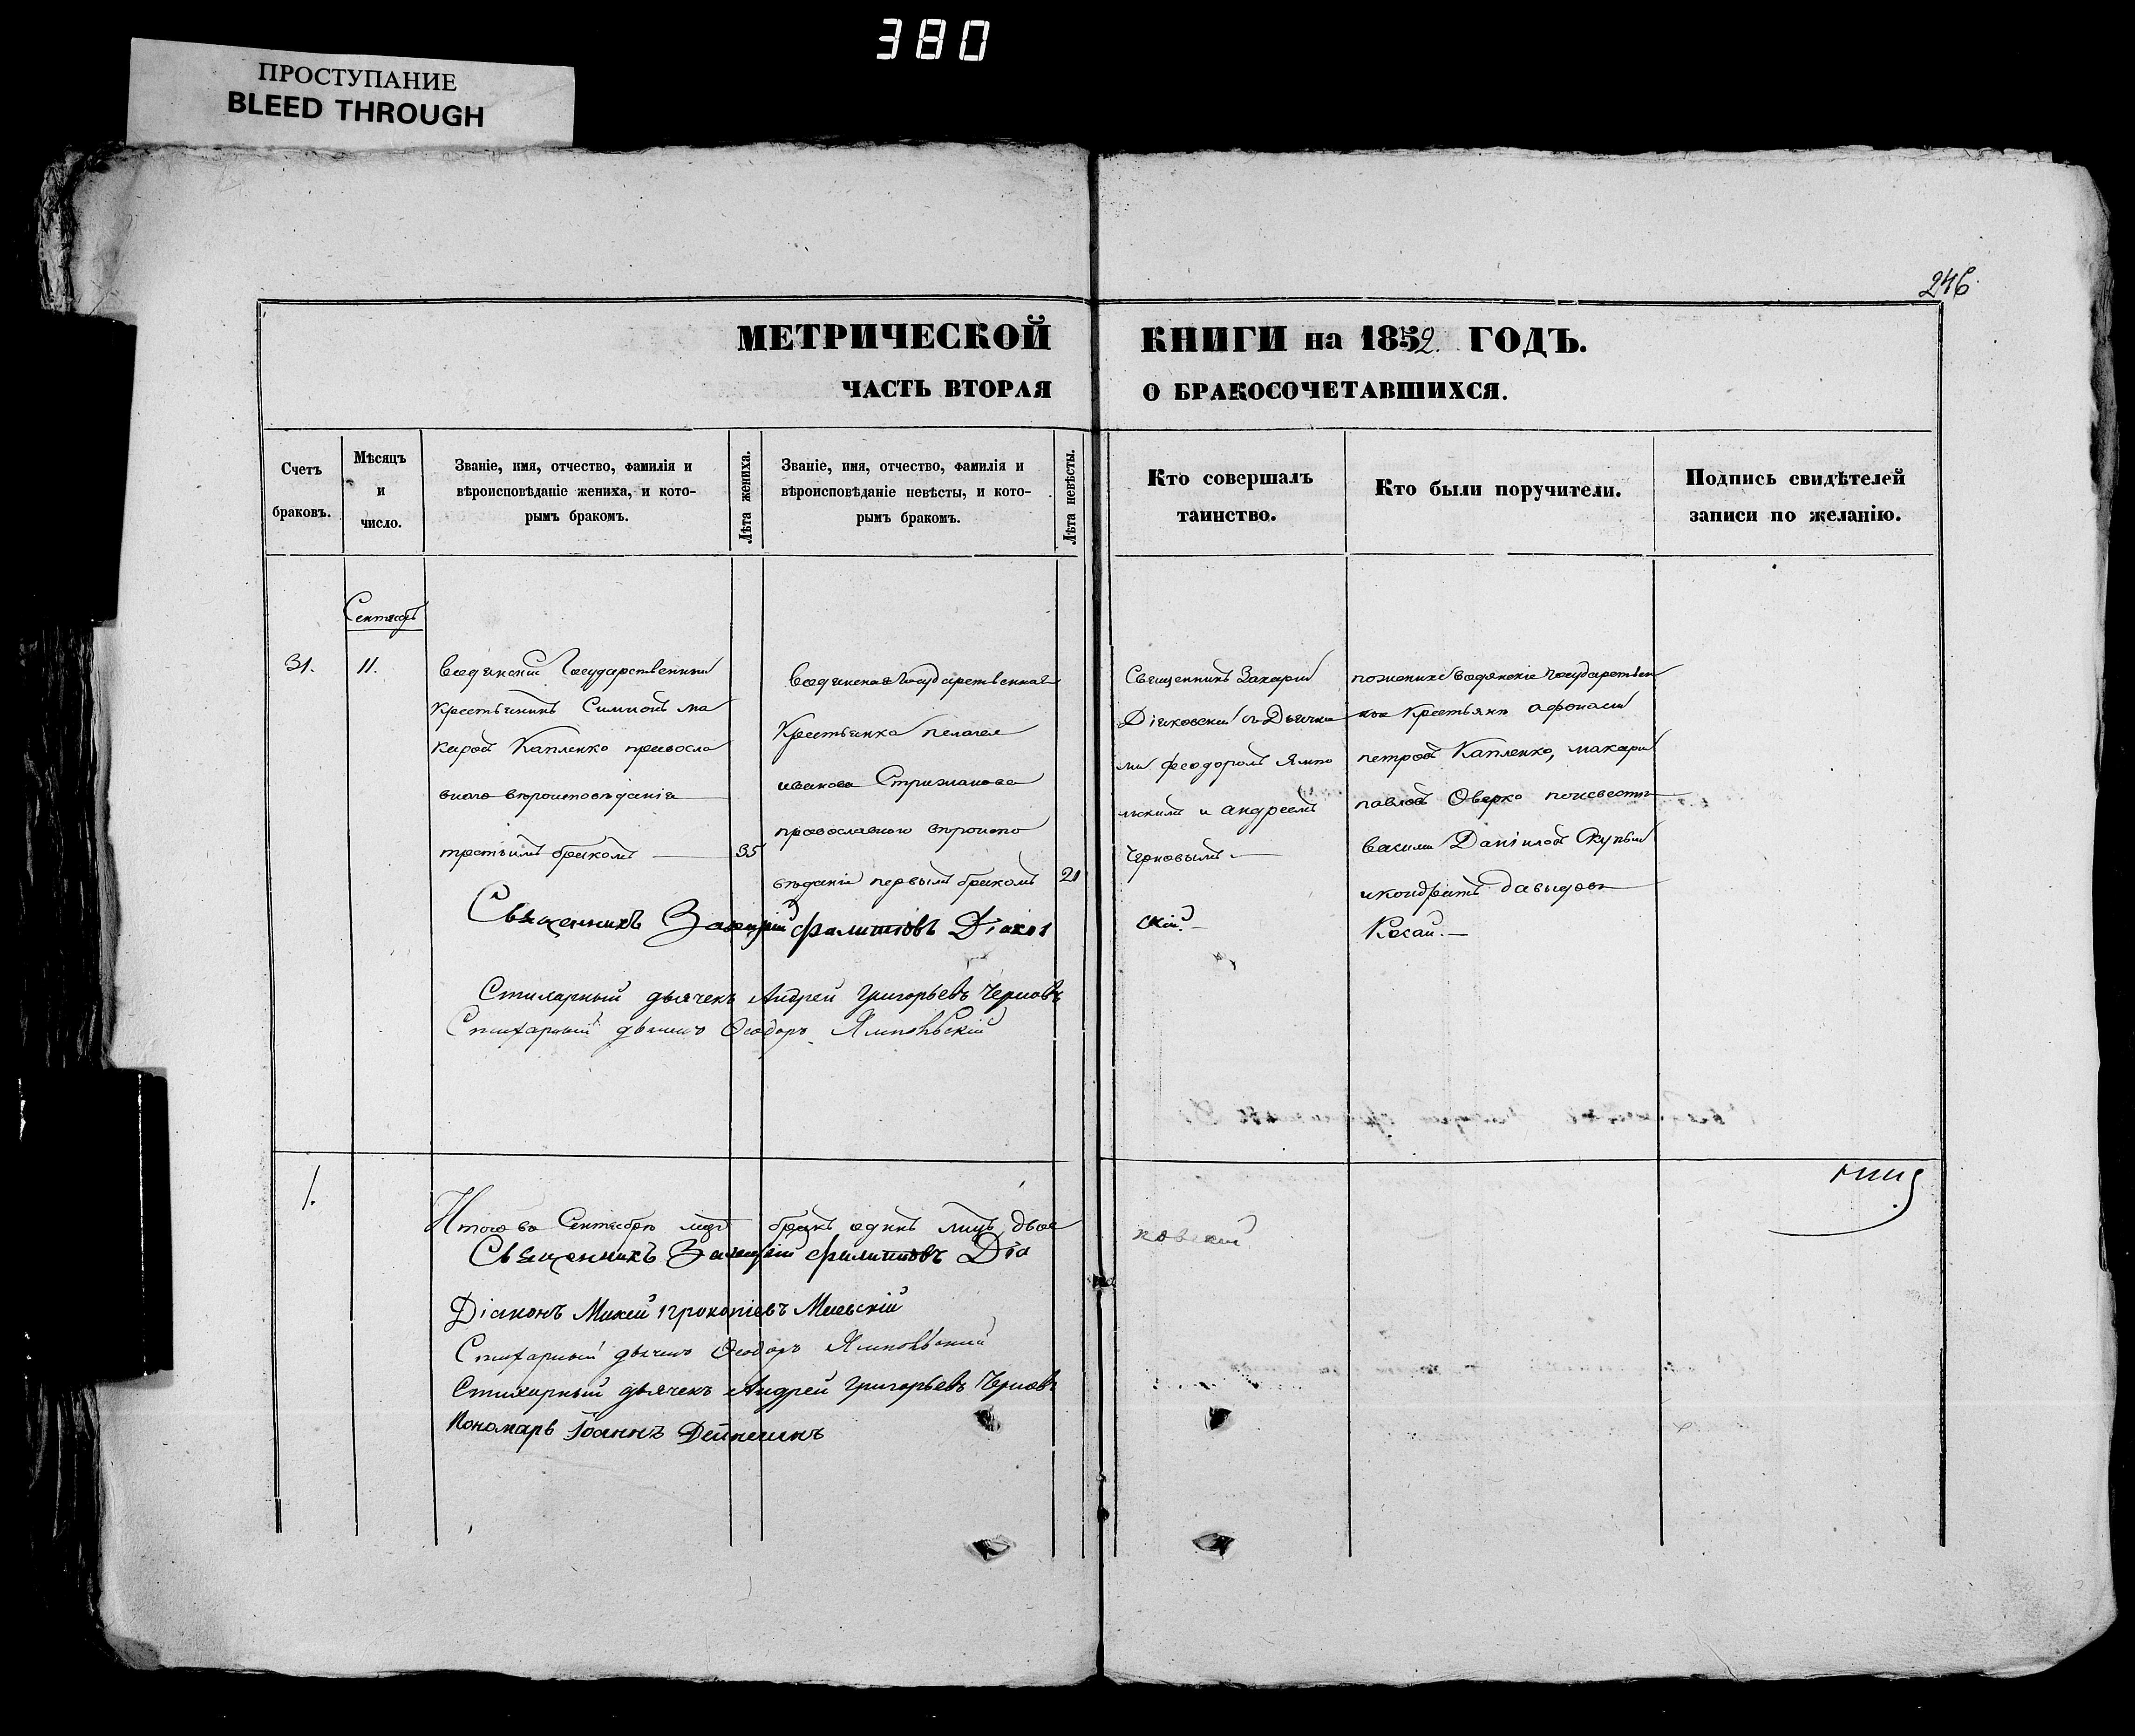 380
ПРОСТУПАНИЕ
BLEED THROUGH
246
МЕТРИЧЕСКОЙ КНИГИ на 1852. ГОДЪ.
ЧАСТЬ ВТОРАЯ О БРАКОСОЧЕТАВШИХСЯ.
Счетъ браковъ.
Мѣсяцъ и число.
Званіе, имя, отчество, фамилія и
вѣроисповѣданіе жениха, и кото-
рымъ бракомъ.
Лѣта жениха.
Званіе, имя, отчество, фамилія и
вѣроисповѣданіе невѣсты, и кото-
рымъ бракомъ.
Лѣта невѣсты.
Кто совершалъ
таинство.
Кто были поручители.
Подпись свидѣтелей
записи по желанію.
Сентябрь
31.
11.
водянский Государственный
Крестьянинъ Симионъ ма
каровъ Капленко православ
вного вѣроисповѣданія
третьимъ бракомъ
35
водянская Государственная
Крестьянка пелагея
иванова Стрижакова
православного вѣроиспо
вѣданія первымъ бракомъ
21
Священникъ Захарий
Діяковский съ Дьячка
ми феодоромъ Ямпо
льскимъ и андреемъ
Черновымъ
пожених Водянские Государствен
ные Крестьяне афонасий
петровъ Капленко, макарий
павловъ Оверко поневесты
василий Даніиловъ
икондратъ давыдовъ
Косай.
Священникъ Захарій Филиповъ Діяков
скій.
Стихарный дьячекъ Андрей Григорьевъ Черновъ
Стихарный дьячекъ Ѳеодоръ Ямпольскій
1.
Итого въ Сентябрѣ мцѣ бракъ одинъ лицъ двое
Священникъ Захарій Филиповъ Дія
ковскій
Діаконъ Михей Прокопіевъ Миевскій
Стихарный дьячекъ Ѳеодоръ Ямпольский
Стихарный дьячекъ Андрей Григорьевъ Черновъ
Пономарь Іоаннъ Дейнекинъ